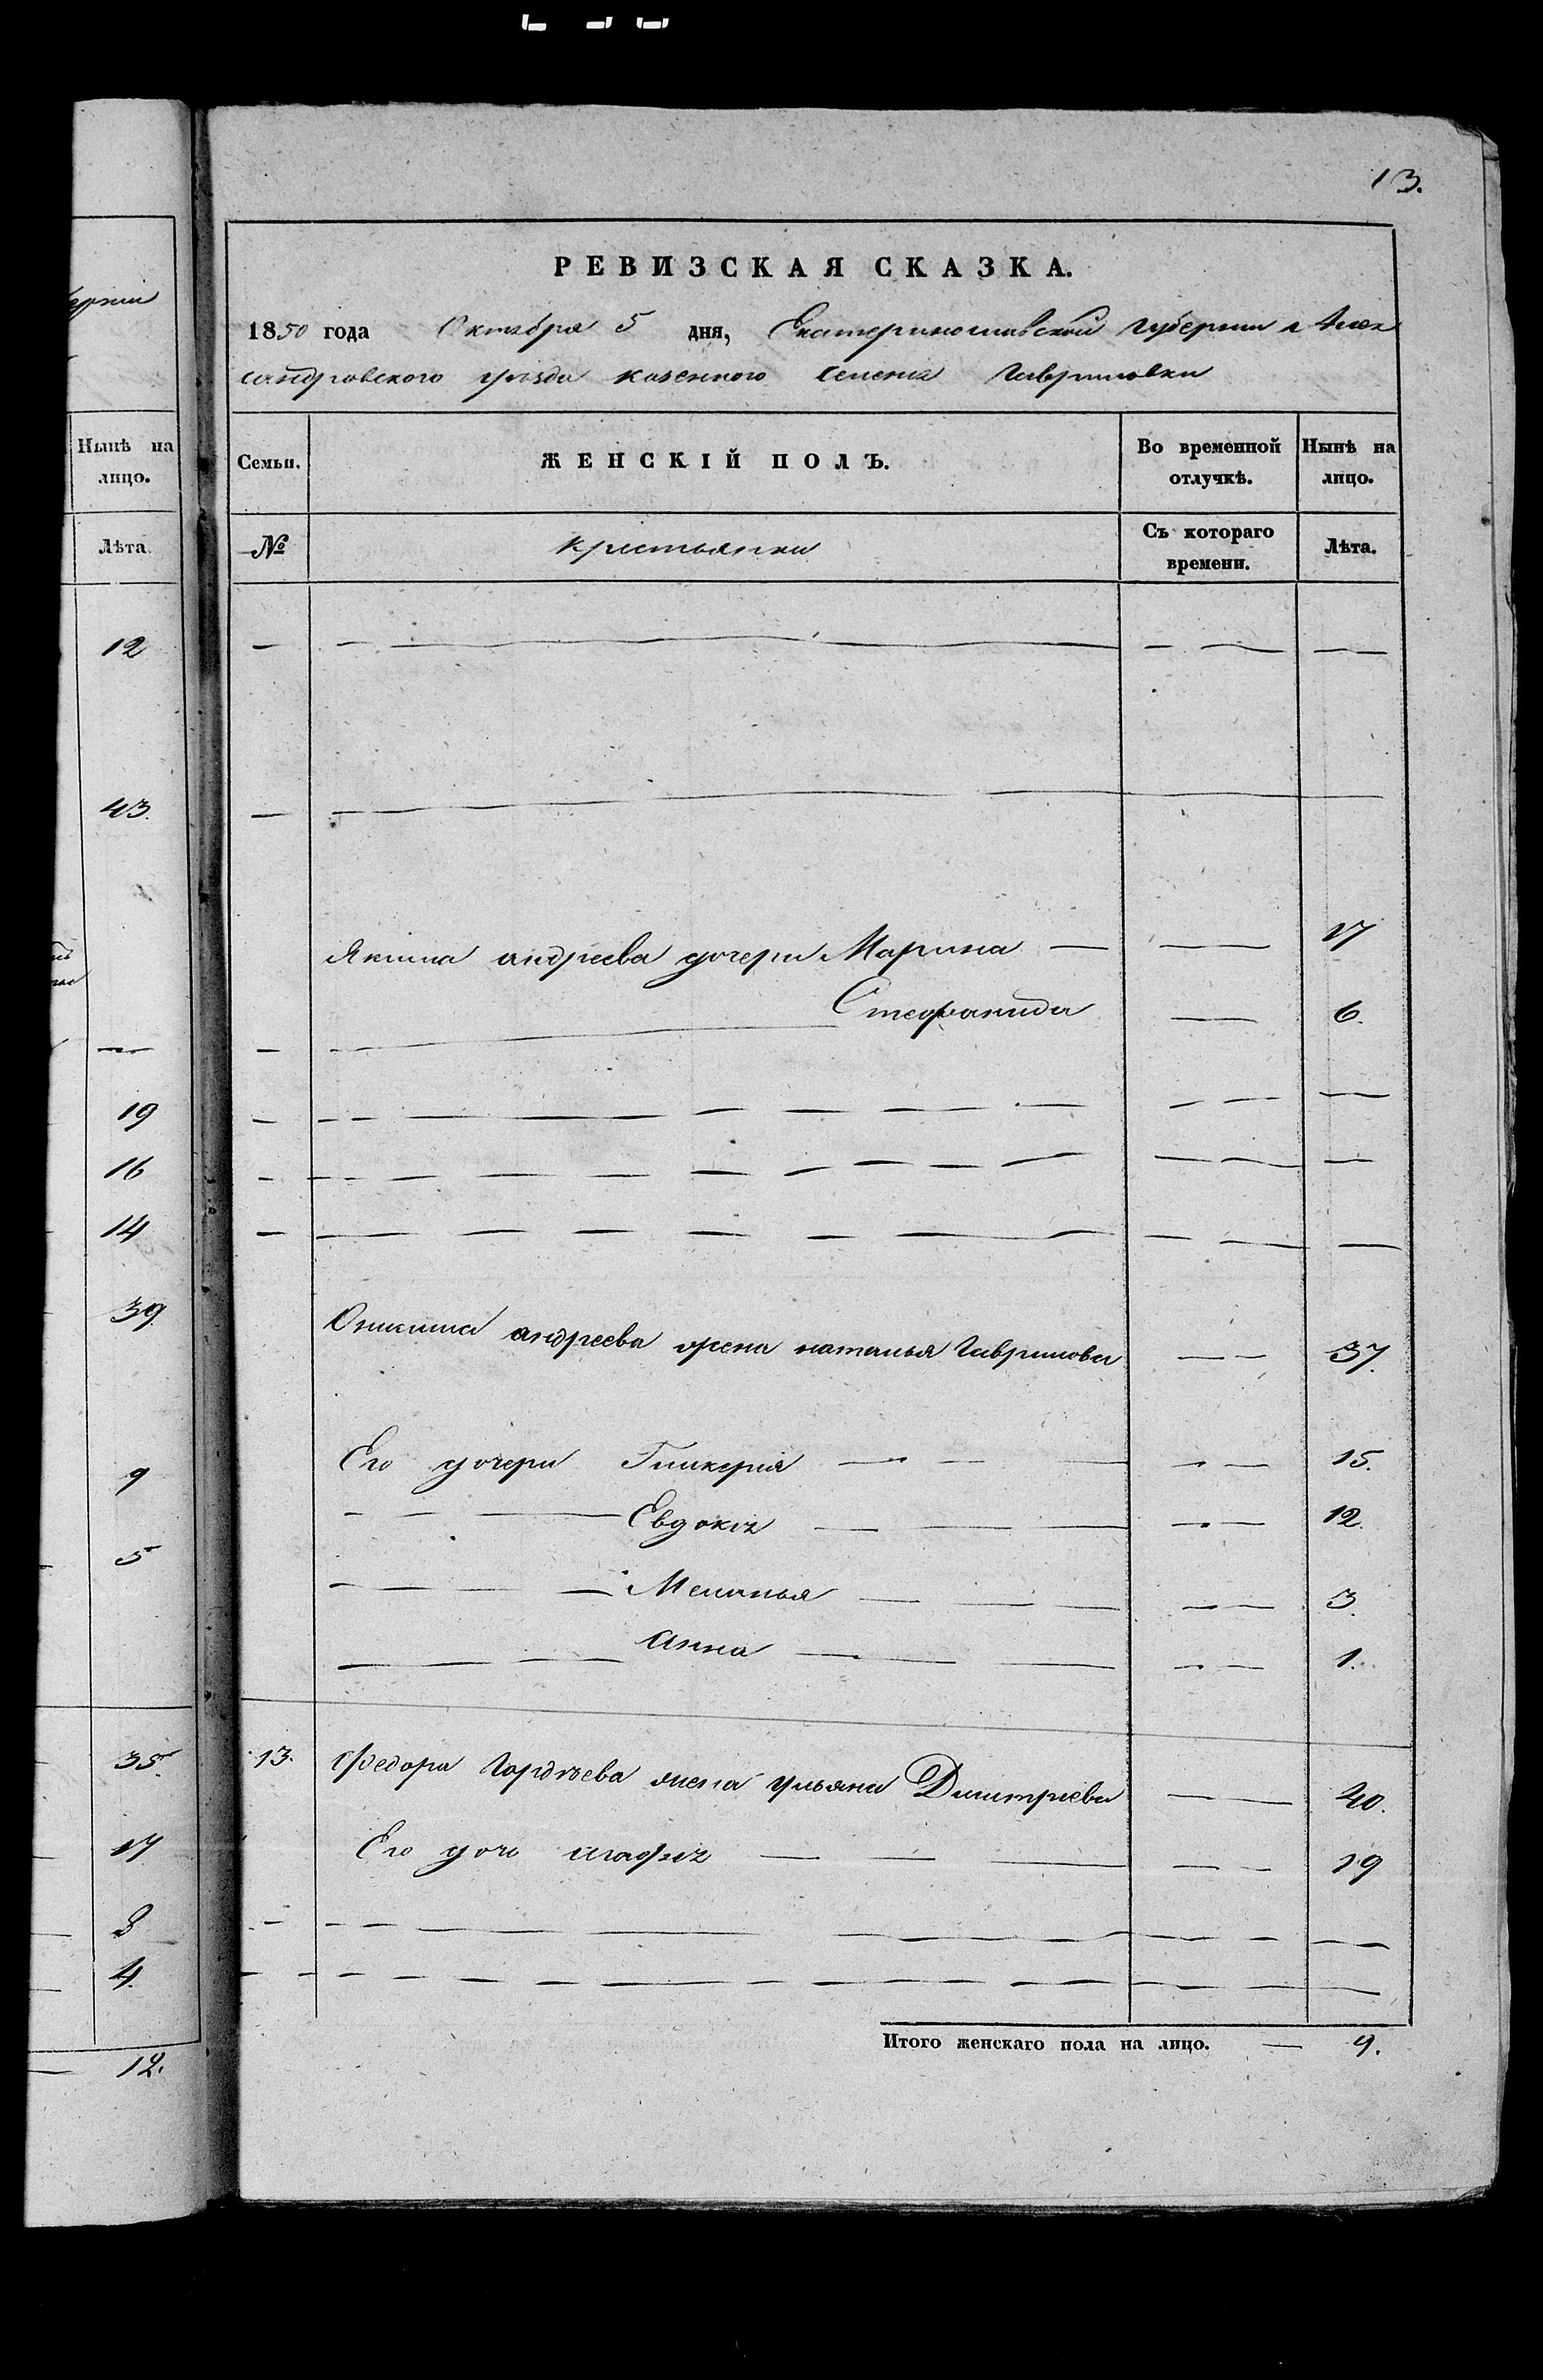 ерніи
Нынѣ на
лицо.
Лѣта
12
43.
19
16
14
39.
9
5
35.
17
8
4.
12.
13.
РЕВИЗСКАЯ СКАЗКА.
1850 года Октября 5 дня, Екатеринославской губернии Алек
сандровского уѣзда казенного селенія Гавриловки
Семьи. ЖЕНСКІЙ ПОЛЪ. Во временной отлучкѣ. Нынѣ на лицо.
№ крестьянки Съ котораго времени. Лѣта.
Якима андреева дочери Марина — — 17
Стефанида — 6.
Оникима андреева жена наталья Гаврилова — 37.
Его дочери Гликерія — — 15.
Евдокія — — 12.
Меланья — — 3.
анна — — 1.
13. Федора Гордѣева жена ульяна Димитріева — 40.
Его дочь агафія — — 19
Итого женскаго пола на лицо. — 9.